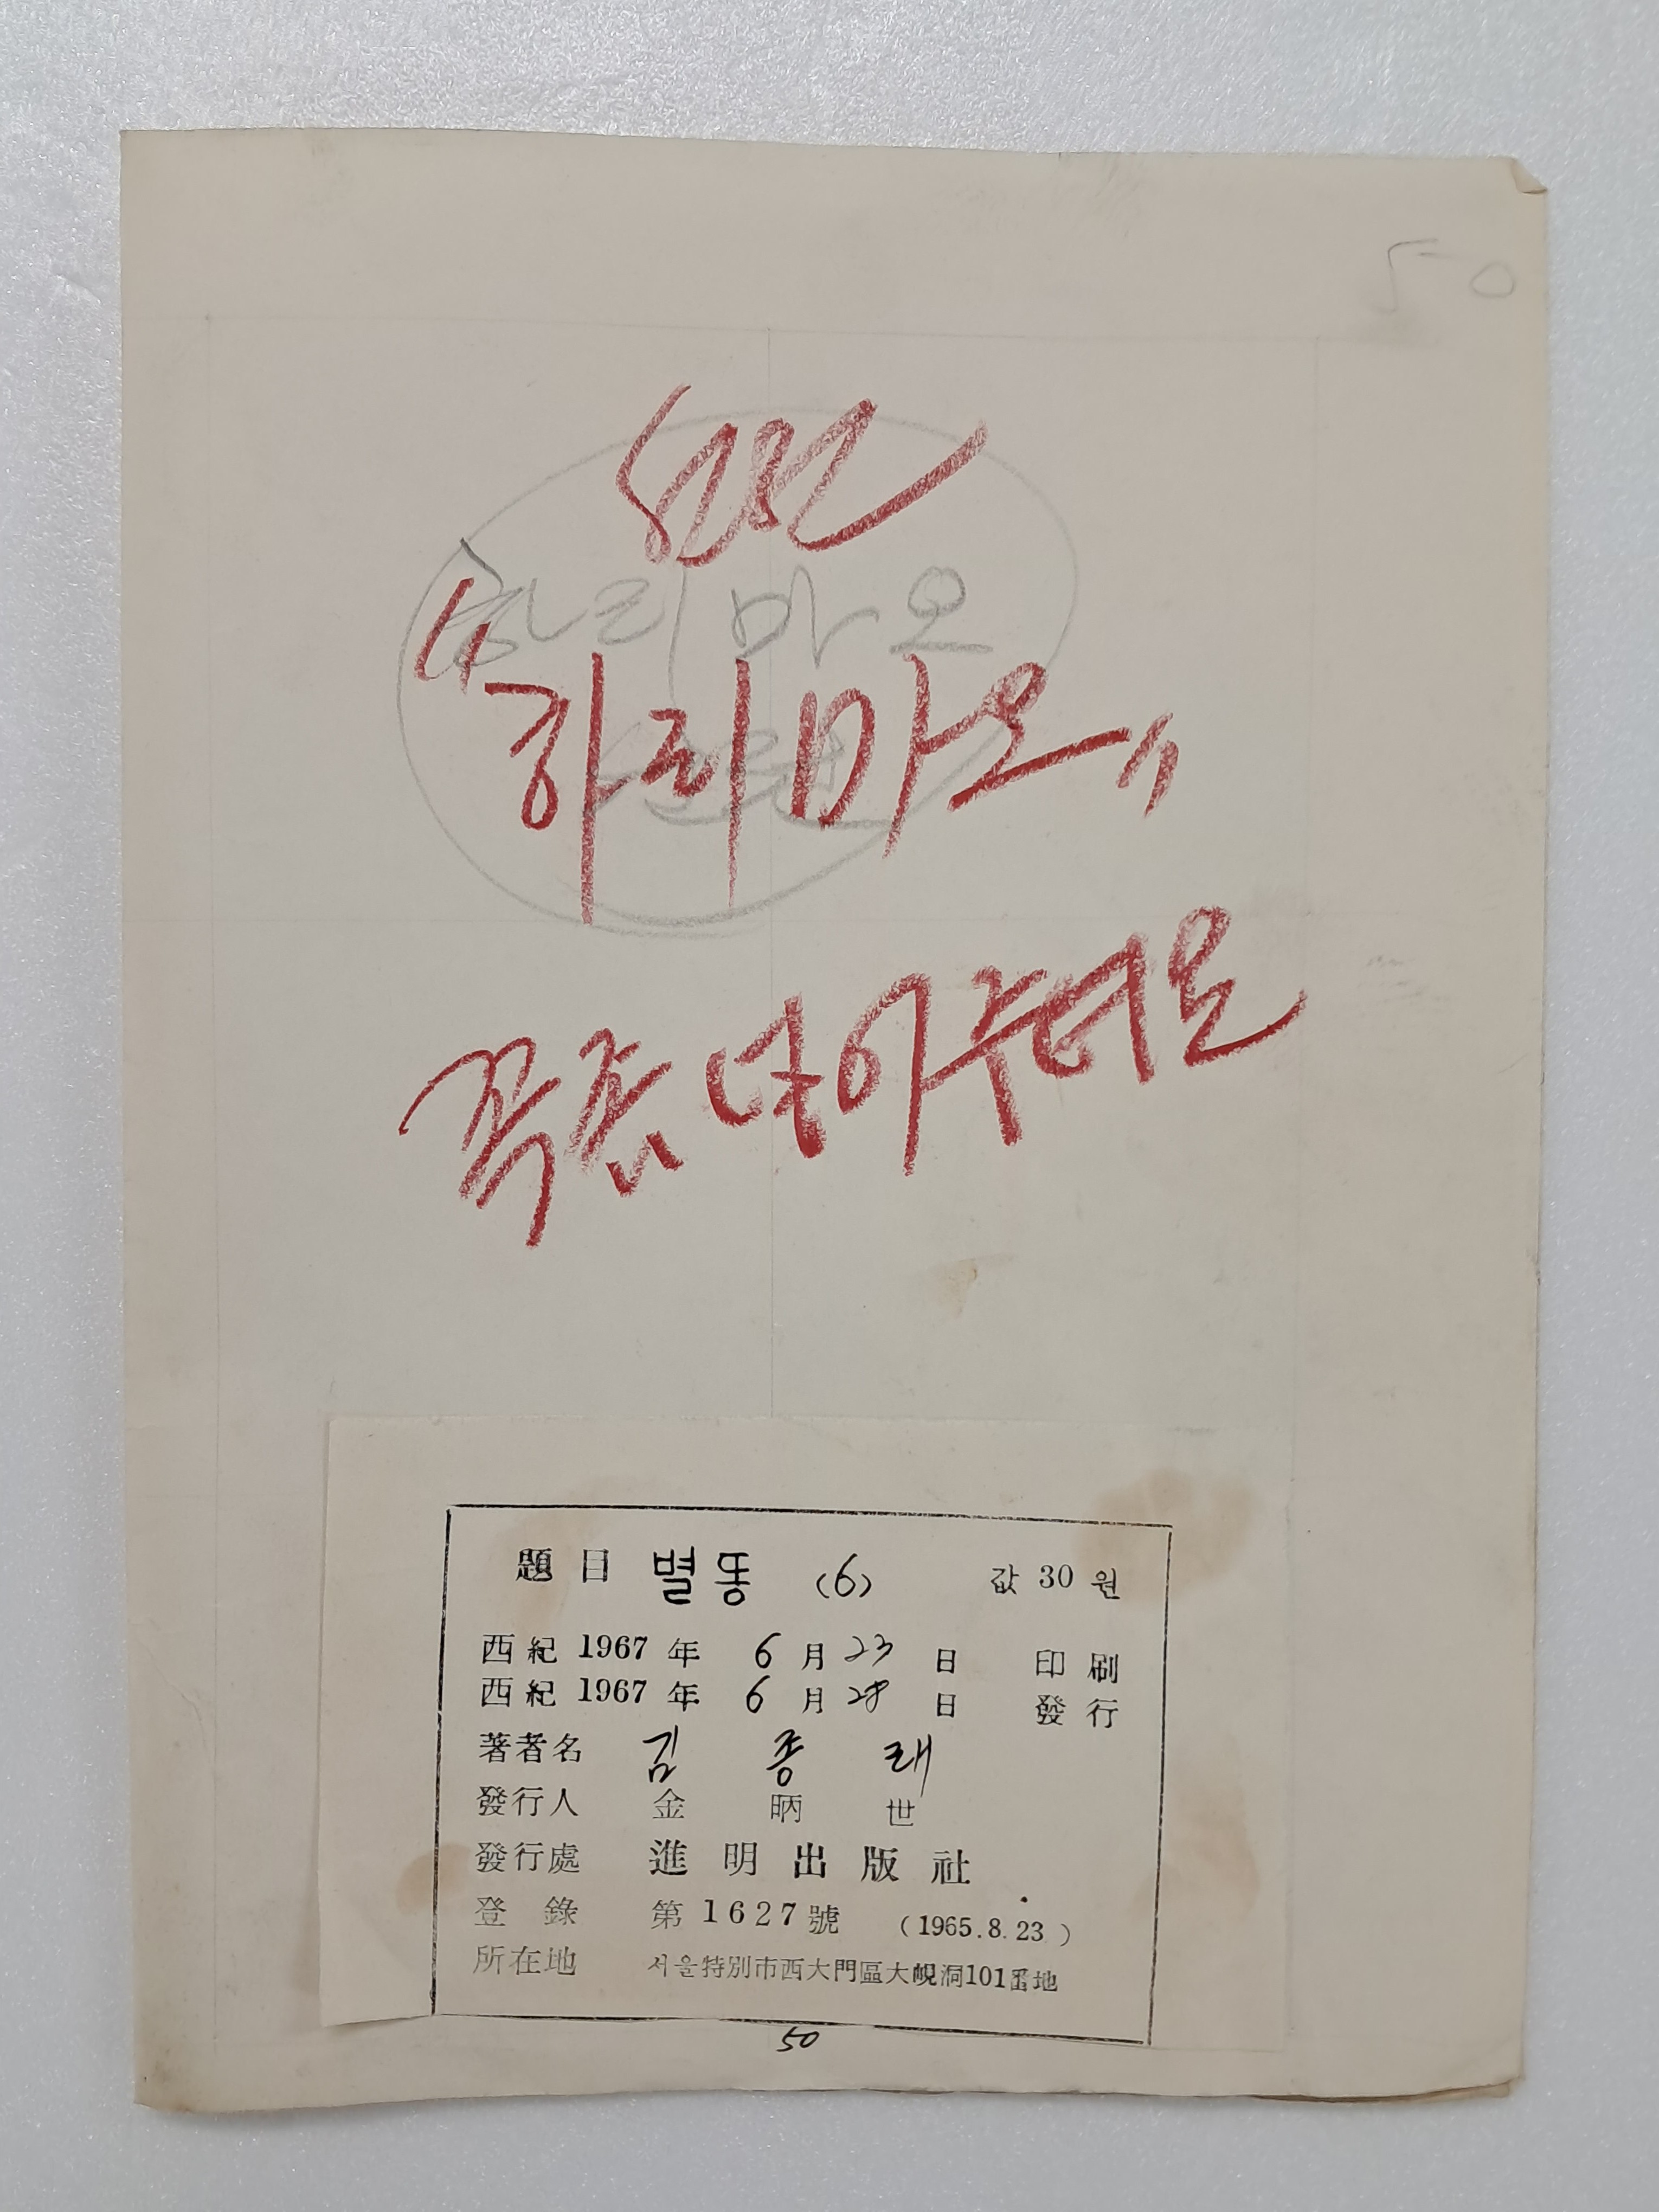 50
하리마오
선전
"하리마오"
꼭좀 넣어주세요
題目 별똥 (6) 값 30 원
西紀 1967 年 6 月 23 日 印刷
西紀 1967 年 6 月 28 日 發行
著者名 김종래
發行人 金昞世
發行處 進明出版社
登錄 第1627號 (1965.8.23)
所在地 서울特別市西大門區大峴洞101番地
50